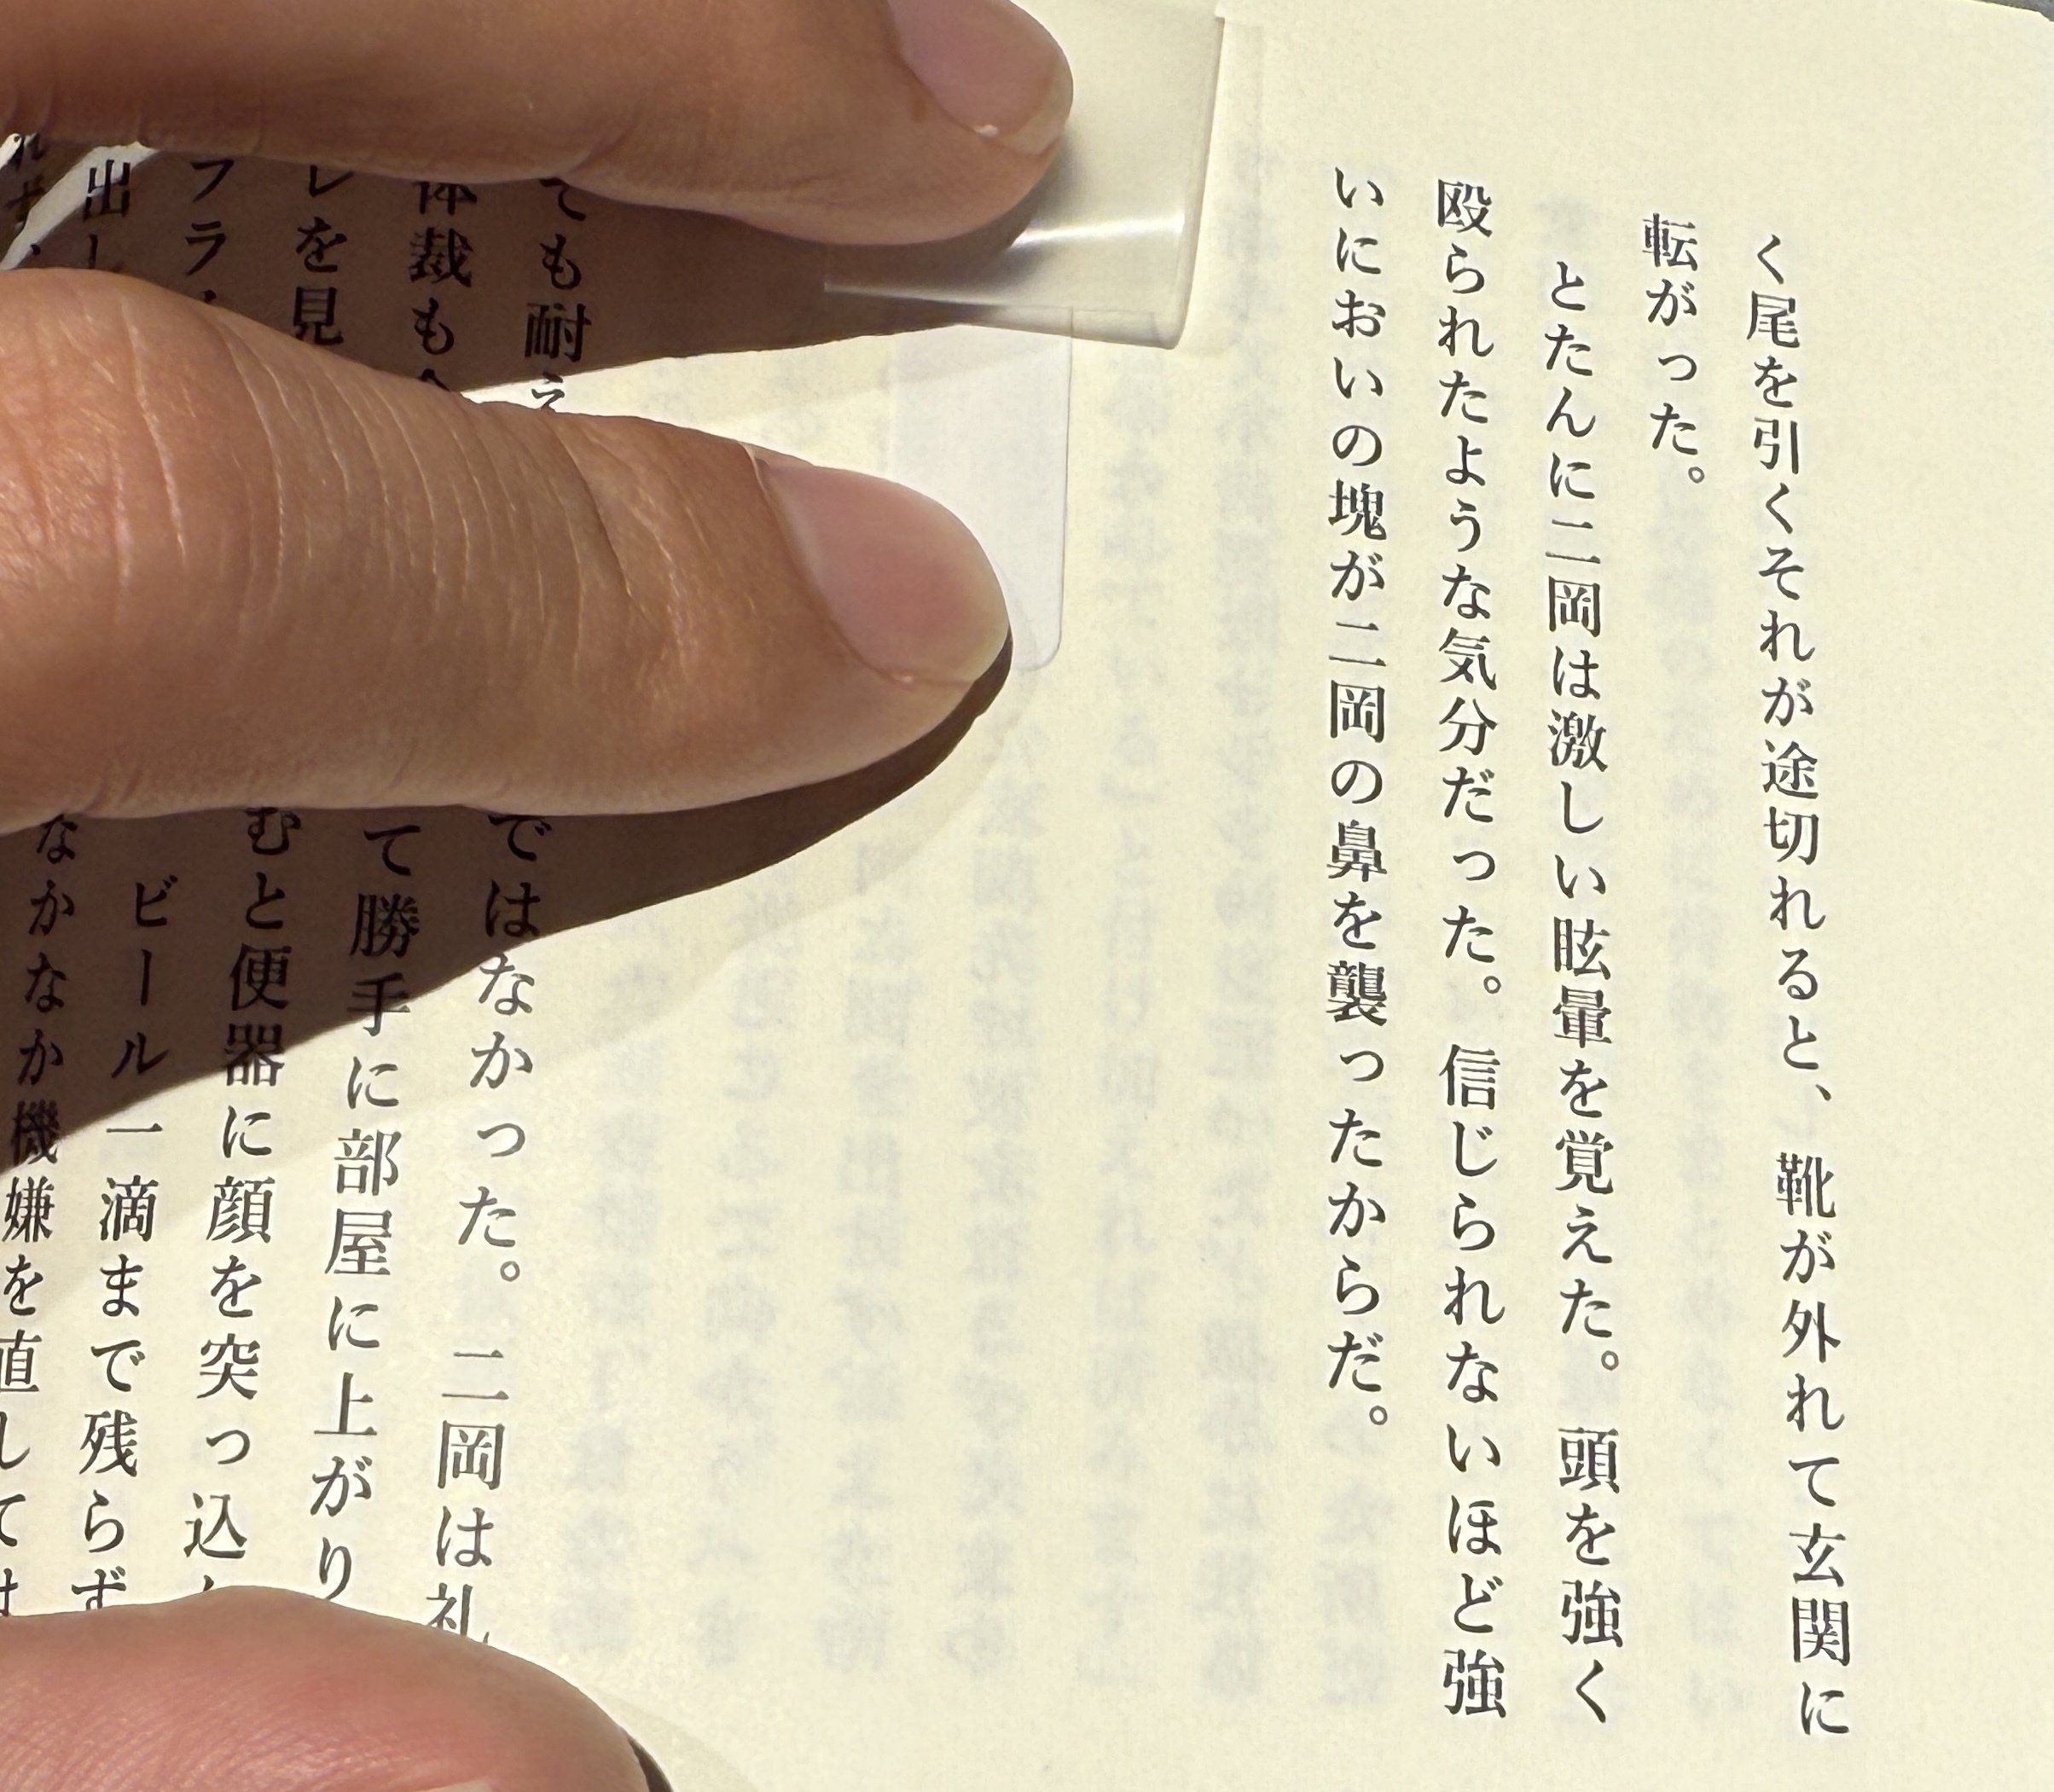 く尾を引くそれが途切れると、靴が外れて玄関に
転がった。
とたんに二岡は激しい眩暈を覚えた。頭を強く
殴られたような気分だった。信じられないほど強
いにおいの塊が二岡の鼻を襲ったからだ。
ても耐え
ではなかった。二岡は礼
体裁も
て勝手に部屋に上がり
レを見
むと便器に顔を突っ込
フラ
ビール一滴まで残らず
出し
なかなか機嫌を直しては